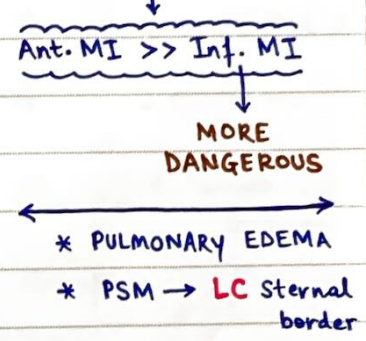 Ant. MI >> Inf. MI
MORE
DANGEROUS
* PULMONARY EDEMA
* PSM → LC Sternal
border